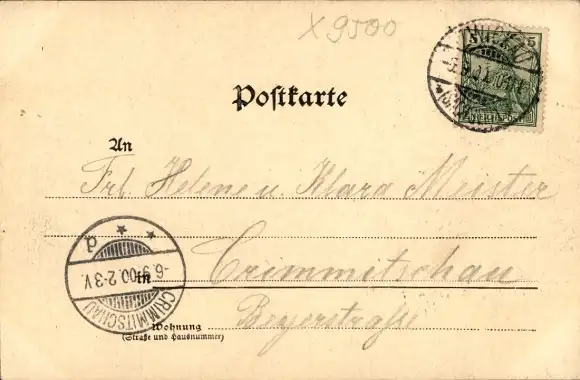 X 9500
5
Postkarte
An
Frl. Helene u. Klara Meister
in Crimmitschau
Beyerstraße
Wohnung
(Straße und Hausnummer)
CRIMMITSCHAU
-6.9.00. 2-3 V.
* * p